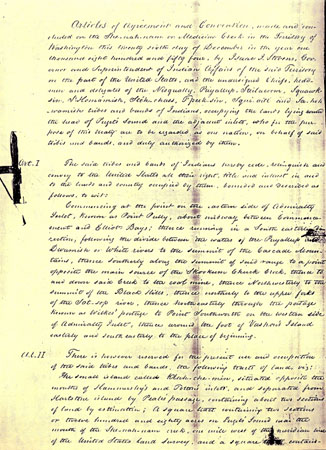 Articles of Agreement and Convention, made and con-
cluded on the She-nah-nam or Medicine Creek in the Territory of
Washington this twenty sixth day of December in the year one
thousand eight hundred and fifty four, by Isaac I. Stevens, Gov-
ernor and Superintendent of Indian Affairs of the said Territory
on the part of the United States, and the undersigned Chiefs, head-
men and delegates of the Nisqually, Puyallup, Steilacoom, Squawk-
sin, S'Homamish, Stehchass, T'peek-sin, Squi-aitl and Sa-heh-
wamish tribes and bands of Indians, occupying the lands lying round
the head of Puget's Sound and the adjacent inlets, who for the pur-
pose of this treaty are to be regarded as one nation, on behalf of said
tribes and bands, and duly authorized by them.
Art. I The said tribes and bands of Indians hereby cede, relinquish and
convey to the United States all their right, title and interest in and
to the lands and country occupied by them, bounded and described as
follows, to wit:
Commencing at the point on the eastern side of Admiralty
Inlet, known as Point Pully, about midway between Commence-
ment and Elliott Bays; thence running in a South easterly di-
rection, following the divide between the waters of the Puyallup and
Dwamish or White rivers to the summit of the Cascade Moun-
tains, thence southerly along the summit of said range to a point
opposite the main source of the Skookum Chuck Creek, thence to
and down said Creek to the coal mine, thence Northwesterly to the
summit of the Black Hills, thence northerly to the upper forks
of the Sat-sop river, thence Northeasterly through the portage
known as Wilkes' portage to Point Southworth on the western side
of Admiralty Inlet, thence around the foot of Vashon's Island
easterly and south easterly to the place of beginning.
Art. II There is however reserved for the present use and occupation
of the said tribes and bands, the following tracts of land, viz:
The small island called Klah-che-min, situated opposite the
mouths of Hammersley's and Totten's inlets, and separated from
Hartstene island by Peale's passage, containing about two sections
of land by estimation; A square tract containing two sections
or twelve hundred and eighty acres on Puget's Sound near the
mouth of the She-nah-nam creek, one mile west of the meridian line
of the United States Land Survey, and a square tract contain-